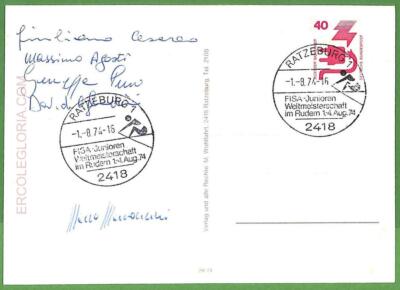 Giuliano Cesareo
Massimo Agosti
Giuseppe
Davide
RATZEBURG 1
-1.-8.74-16
FISA-Junioren
Weltmeisterschaft
im Rudern 1.-4.Aug.74
2418
40
RATZEBURG
-1.-8.74-16
FISA-Junioren
Weltmeisterschaft
im Rudern 1.-4.Aug.74
2418
Verlag und alle Rechte: M. Wohlfahrt, 2418 Ratzeburg, Tel. 2106
ERCOLEGLORIA.COM